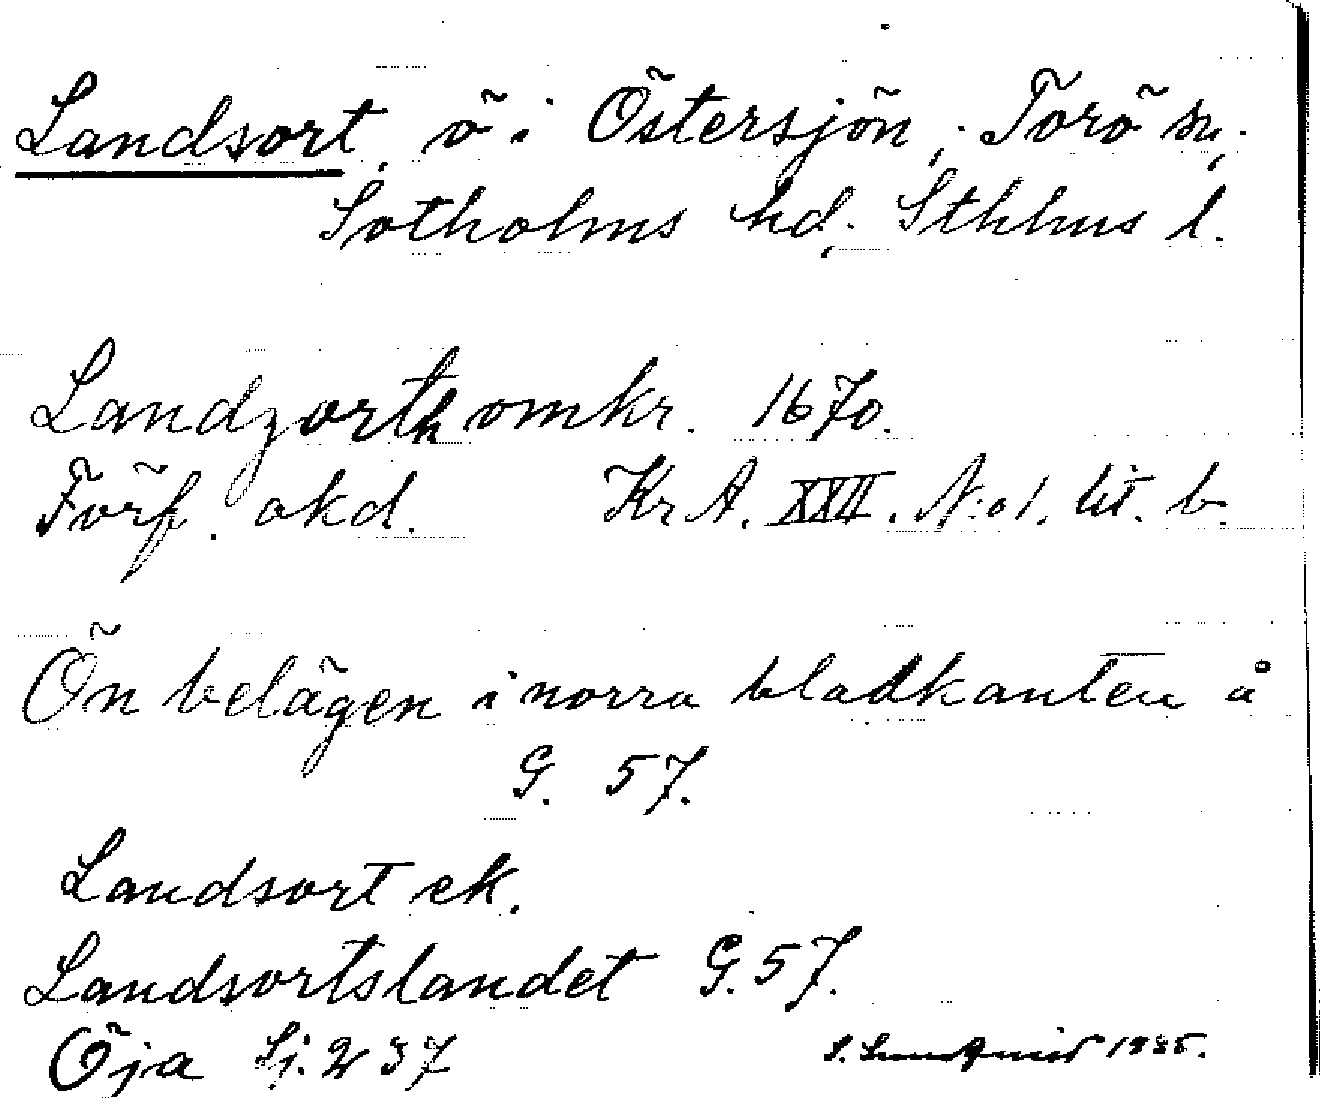 Landsort, ö i Östersjön, Torö sn,
Sotholms hd, Sthlms l.
Landzorth omkr. 1670.
Förf. okd. Kr A. XXII. N:o 1. lit. b.
Ön belägen i norra bladkanten å
G. 57.
Landsort ek.
Landsortslandet G. 57.
Öja Sj. 237
S. Lundqvist 1935.